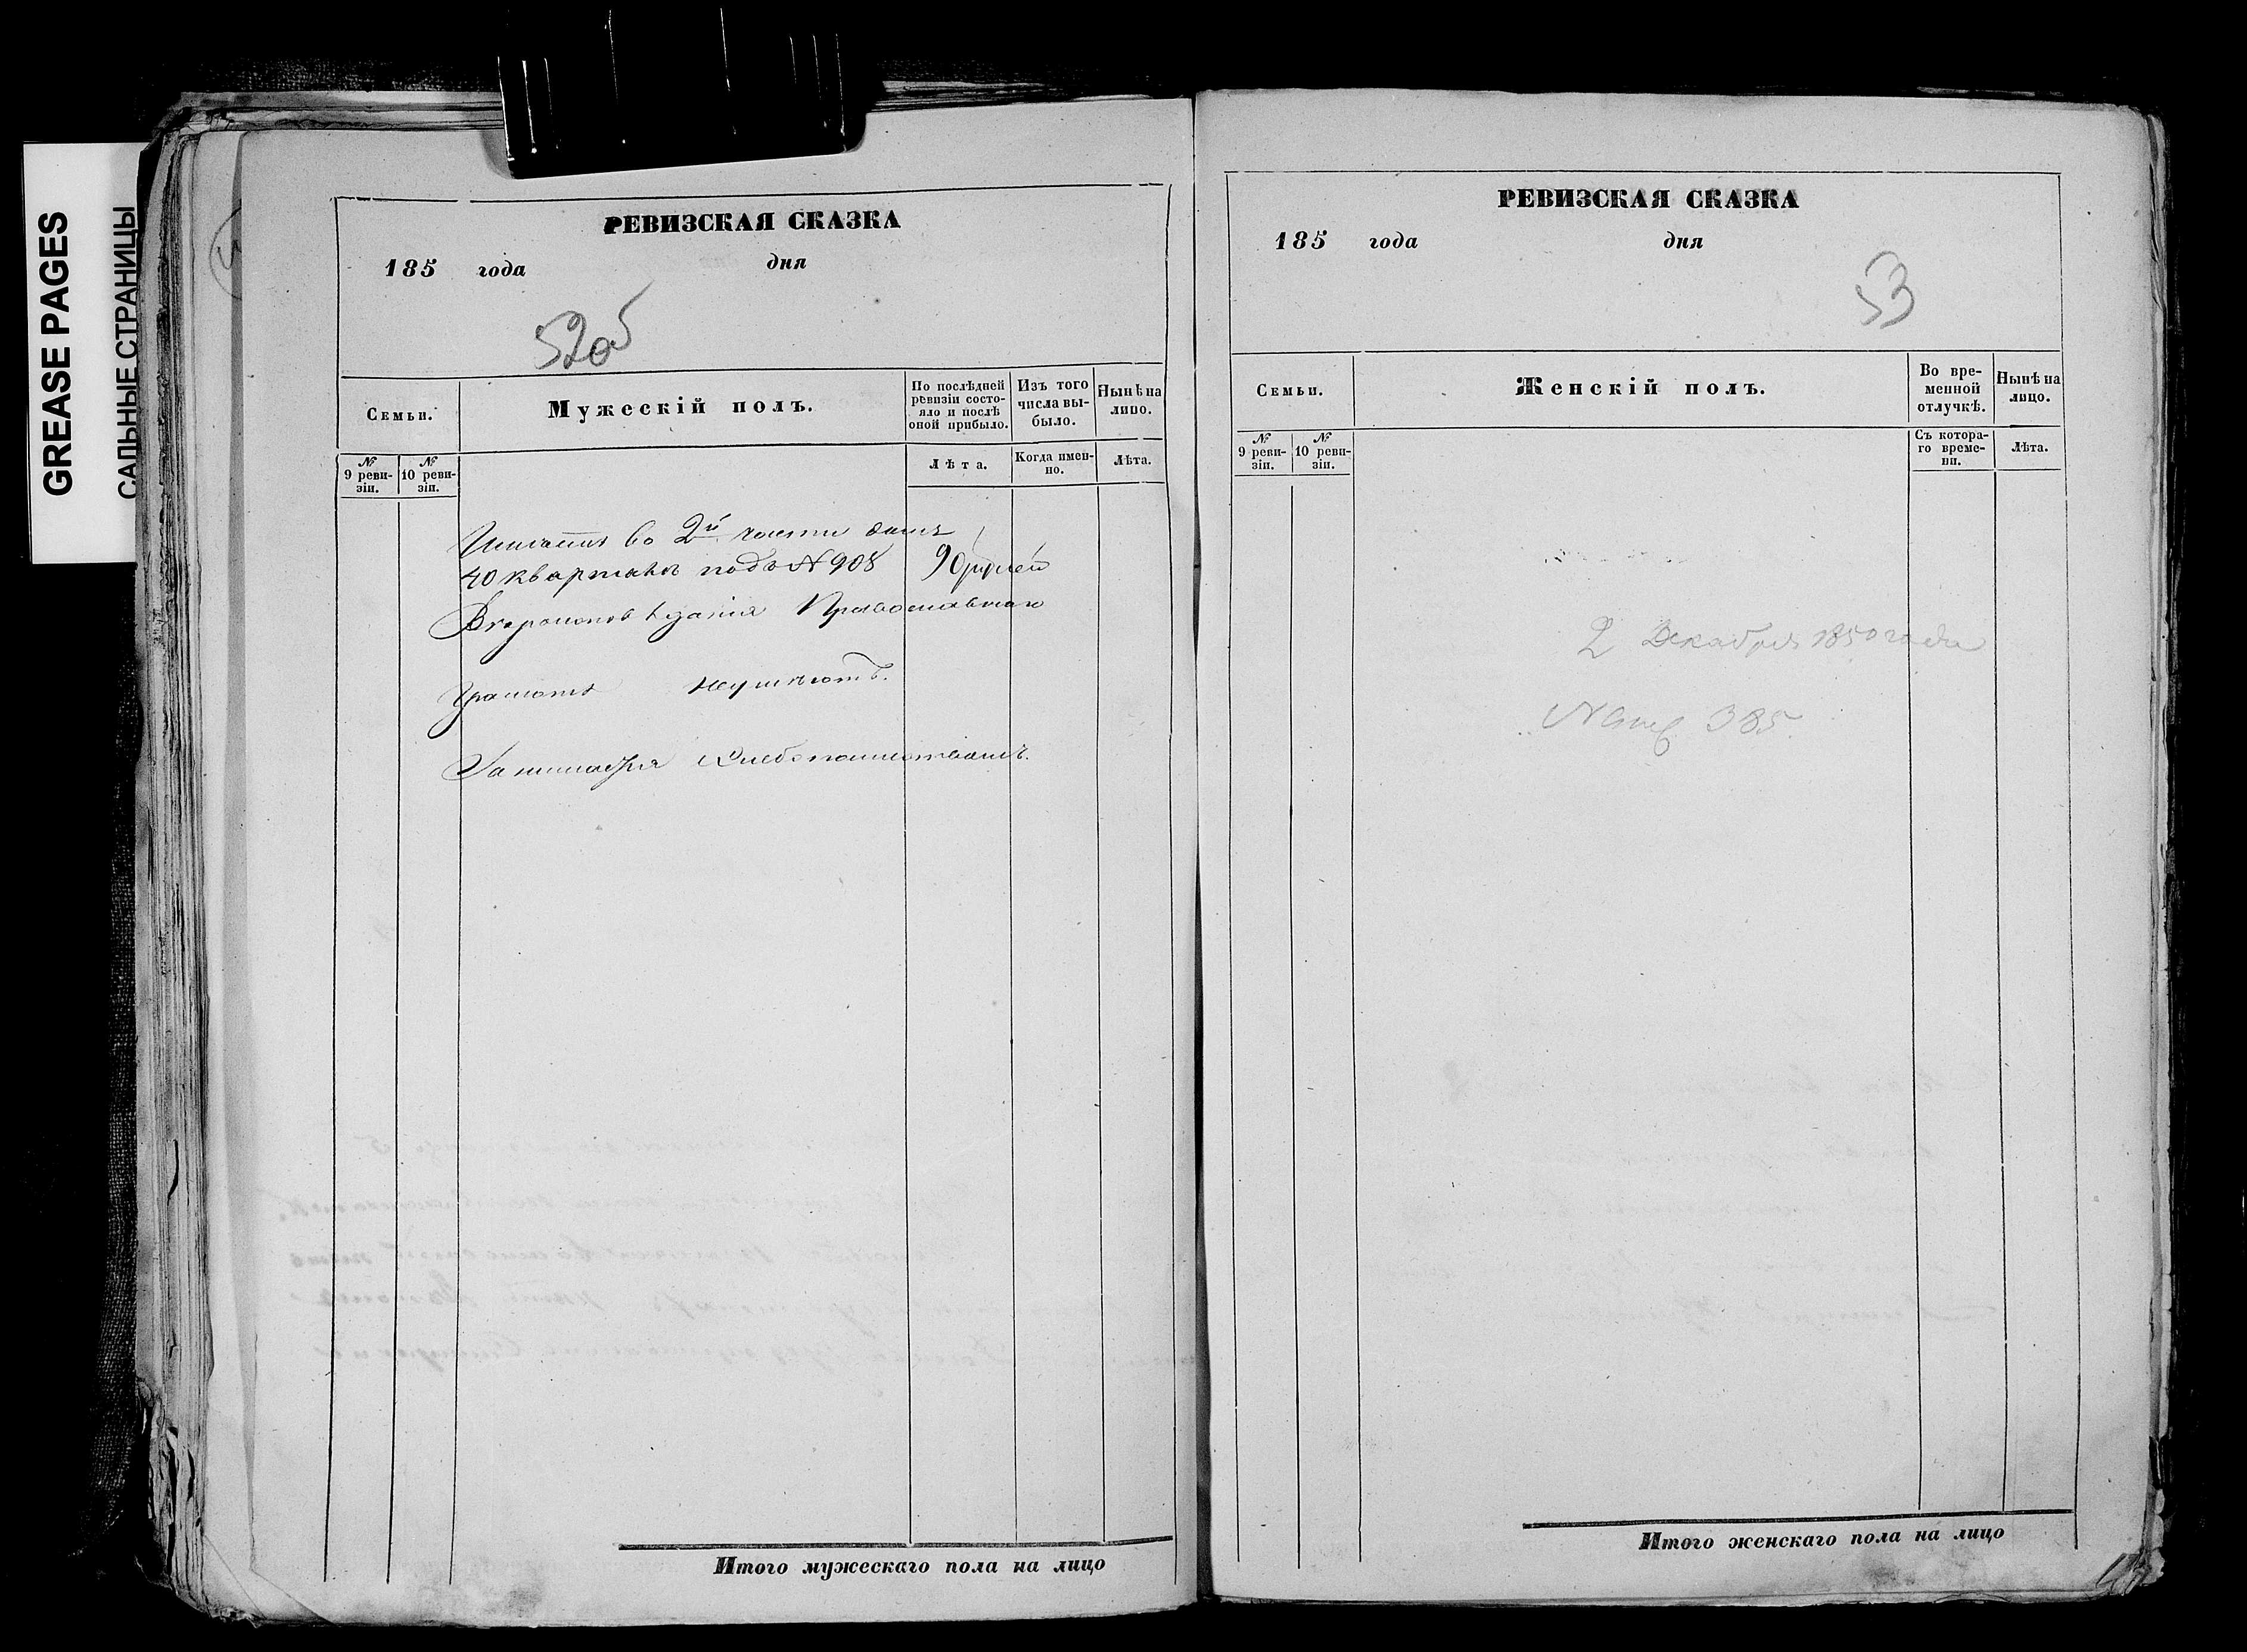 GREASE PAGES
САЛЬНЫЕ СТРАНИЦЫ
РЕВИЗСКАЯ СКАЗКА
185 года дня
52об
Семьи.
Мужескій полъ.
По послѣдней ревизіи состояло и послѣ оной прибыло.
Изъ того числа выбыло.
Нынѣ на лицо.
№ 9 ревизіи.
№ 10 ревизіи.
Лѣта.
Когда именно.
Лѣта.
во 2й части домъ
40 кварталъ подъ №908 90 рублей
Вероисповѣданія Православнаго
Грамоте неумѣютъ.
Занимаются Хлебопашествомъ.
Итого мужескаго пола на лицо
РЕВИЗСКАЯ СКАЗКА
185 года дня
53
Семьи.
Женскій полъ.
Во временной отлучкѣ.
Нынѣ на лицо.
№ 9 ревизіи.
№ 10 ревизіи.
Съ котораго времени.
Лѣта.
2 Декабря 1850 года
385
Итого женскаго пола на лицо